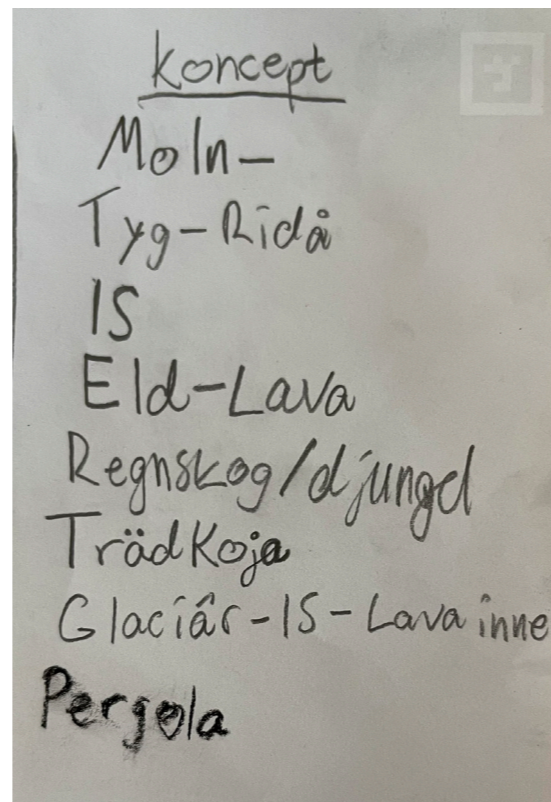 Koncept
Moln-
Tyg-Ridå
IS
Eld-Lava
Regnskog/djungel
TrädKoja
Glaciär-IS-Lava inne
Pergola